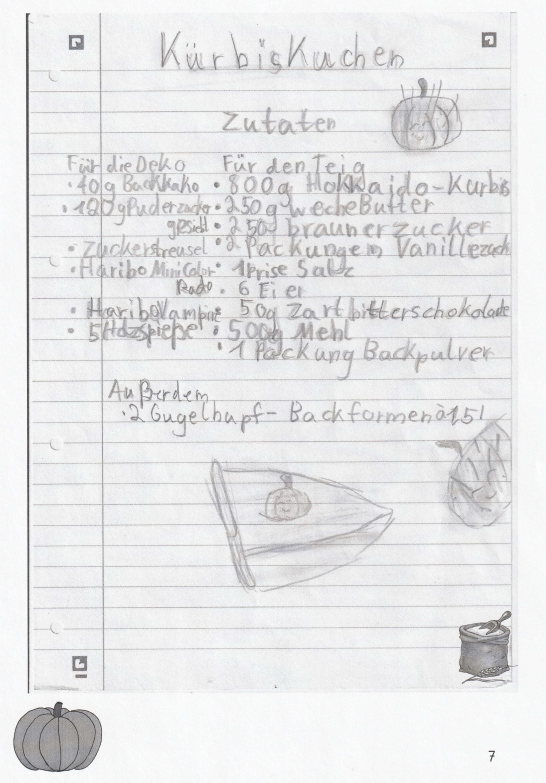 Kürbiskuchen
Zutaten
Für die Deko
• 40g Backkako
• 180g Puderzucker
gesibt
• Zuckerstreusel
• Haribo Mini Color-
Rado
• Haribo Vampire
• 5 Holzspieße
Für den Teig
• 800g Hokkaido-Kürbis
• 250g weche Butter
• 250g brauner zucker
• 2 Packungen Vanillezuck
• 1 Prise Salz
• 6 Eier
50g Zartbitterschokolade
• 500g Mehl
• 1 Packung Backpulver
Außerdem
• 2 Gugelhupf-Backformen à 1,5l
7